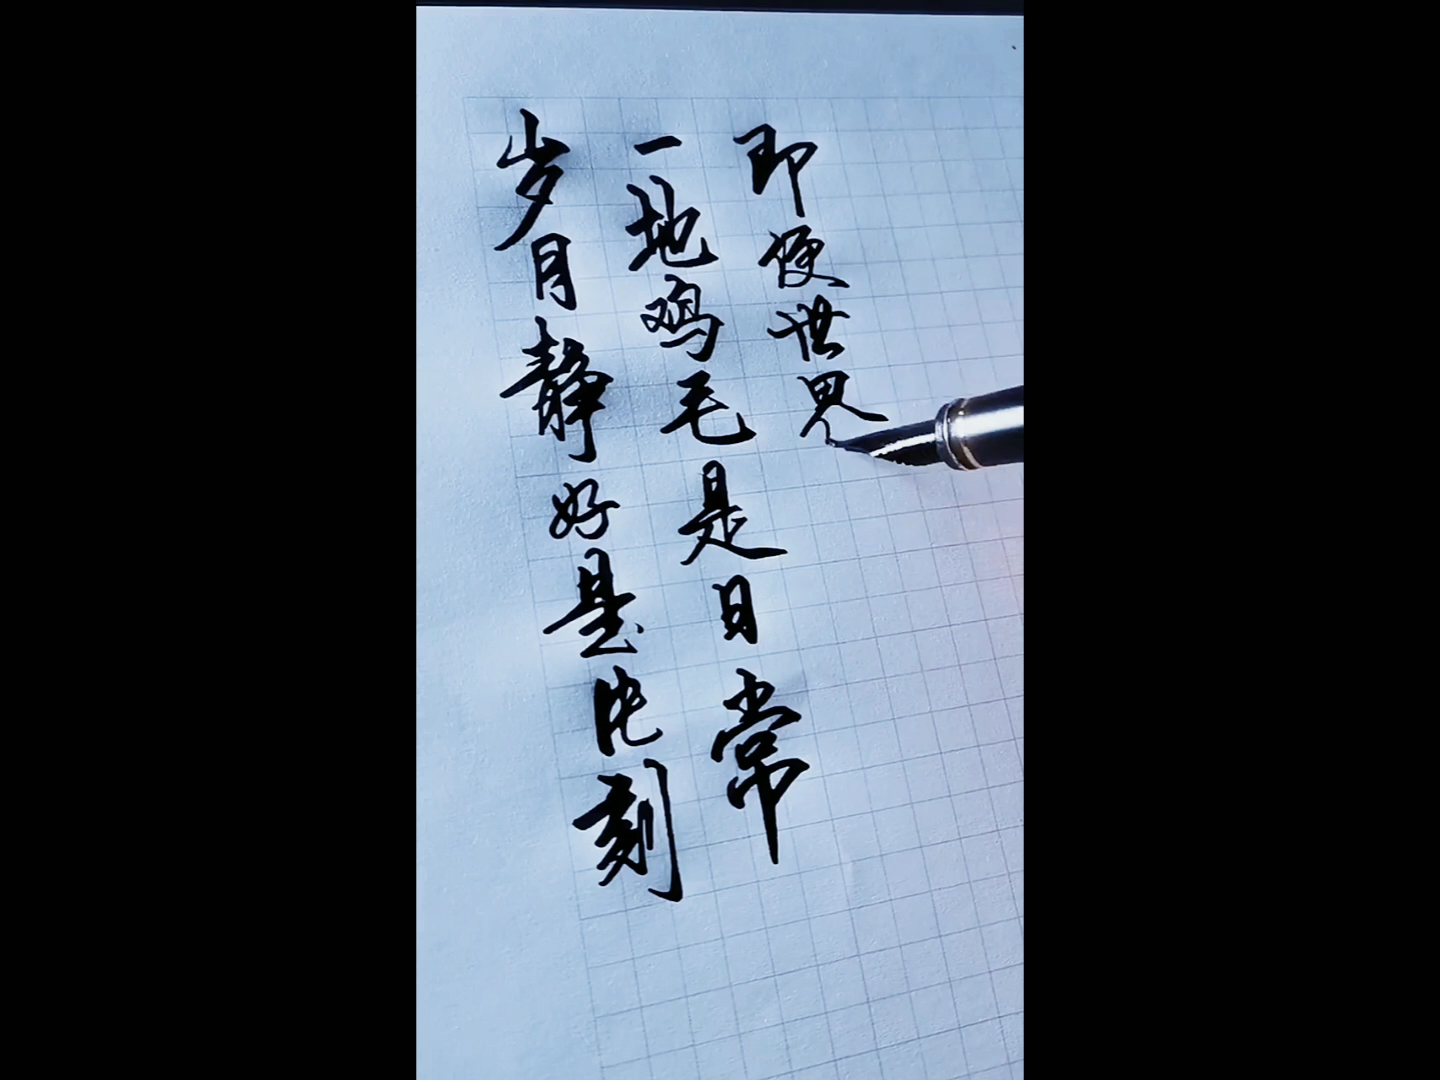 岁月静好是此刻
一地鸡毛是日常
即便世界